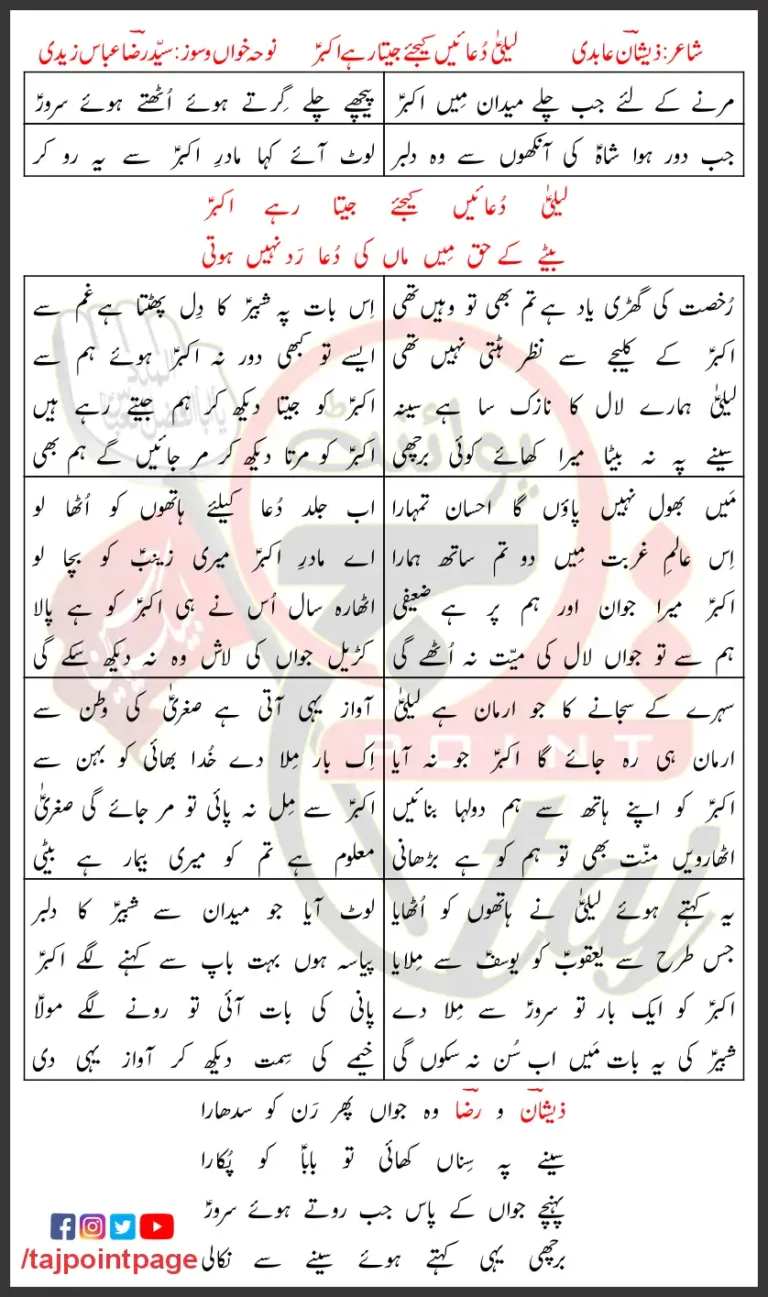 شاعر: ذیشانؔ عابدی لیلیٰؑ دُعائیں کیجئے جیتا رہے اکبرؑ نوحہ خواں و سوز: سیّد رضاؔ عباس زیدی
مرنے کے لئے جب چلے میدان مِیں اکبرؑ پیچھے چلے گِرتے ہوئے اُٹھتے ہوئے سرورؑ
جب دور ہوا شاہؑ کی آنکھوں سے وہ دلبر لوٹ آئے کہا مادرِ اکبرؑ سے یہ رو کر
لیلیٰؑ دُعائیں کیجئے جیتا رہے اکبرؑ
بیٹے کے حق مِیں ماں کی دُعا رَد نہیں ہوتی
رُخصت کی گھڑی یاد ہے تم بھی تو وہیں تھی اِس بات پہ شبیرؑ کا دِل پھٹتا ہے غم سے
اکبرؑ کے کلیجے سے نظر ہٹتی نہیں تھی ایسے تو کبھی دور نہ اکبرؑ ہوئے ہم سے
لیلیٰؑ ہمارے لال کا نازک سا ہے سینہ اکبرؑ کو جیتا دیکھ کر ہم جیتے رہے ہیں
سینے پہ نہ بیٹا میرا کھائے کوئی برچھی اکبرؑ کو مرتا دیکھ کر مر جائیں گے ہم بھی
مَیں بھول نہیں پاؤں گا احسان تمہارا اب جلد دُعا کیلئے ہاتھوں کو اُٹھا لو
اِس عالمِ غربت مِیں دو تم ساتھ ہمارا اے مادرِ اکبرؑ میری زینبؑ کو بچا لو
اکبرؑ میرا جوان اور ہم پر ہے ضعیفی اٹھارہ سال اُس نے ہی اکبرؑ کو ہے پالا
ہم سے تو جواں لال کی میّت نہ اُٹھے گی کڑیل جواں کی لاش وہ نہ دیکھ سکے گی
سہرے کے سجانے کا جو ارمان ہے لیلیٰؑ آواز یہی آتی ہے صغریٰؑ کی وطن سے
ارمان ہی رہ جائے گا اکبرؑ جو نہ آیا اِک بار مِلا دے خُدا بھائی کو بہن سے
اکبرؑ کو اپنے ہاتھ سے ہم دولہا بنائیں اکبرؑ سے مِل نہ پائی تو مر جائے گی صغریٰؑ
اٹھارویں منّت بھی تو ہم کو ہے بڑھانی معلوم ہے تم کو میری بیمار ہے بیٹی
یہ کہتے ہوئے لیلیٰؑ نے ہاتھوں کو اُٹھایا لوٹ آیا جو میدان سے شبیرؑ کا دلبر
جس طرح سے یعقوبؑ کو یوسفؑ سے مِلایا پیاسہ ہوں بہت باپ سے کہنے لگے اکبرؑ
اکبرؑ کو ایک بار تو سرورؑ سے مِلا دے پانی کی بات آئی تو رونے لگے مولاؑ
شبیرؑ کی یہ بات مَیں اب سُن نہ سکوں گی خیمے کی سِمت دیکھ کر آواز یہی دی
ذیشانؔ و رضاؔ وہ جواں پھر رَن کو سدھارا
سینے پہ سِناں کھائی تو باباؑ کو پُکارا
پہنچے جواں کے پاس جب روتے ہوئے سرورؑ
برچھی یہی کہتے ہوئے سینے سے نکالی
/tajpointpage
پوائنٹ
تاج
POINT
taj